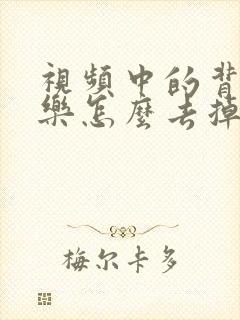 視頻中的背
樂怎麼去掉
梅尔卡多